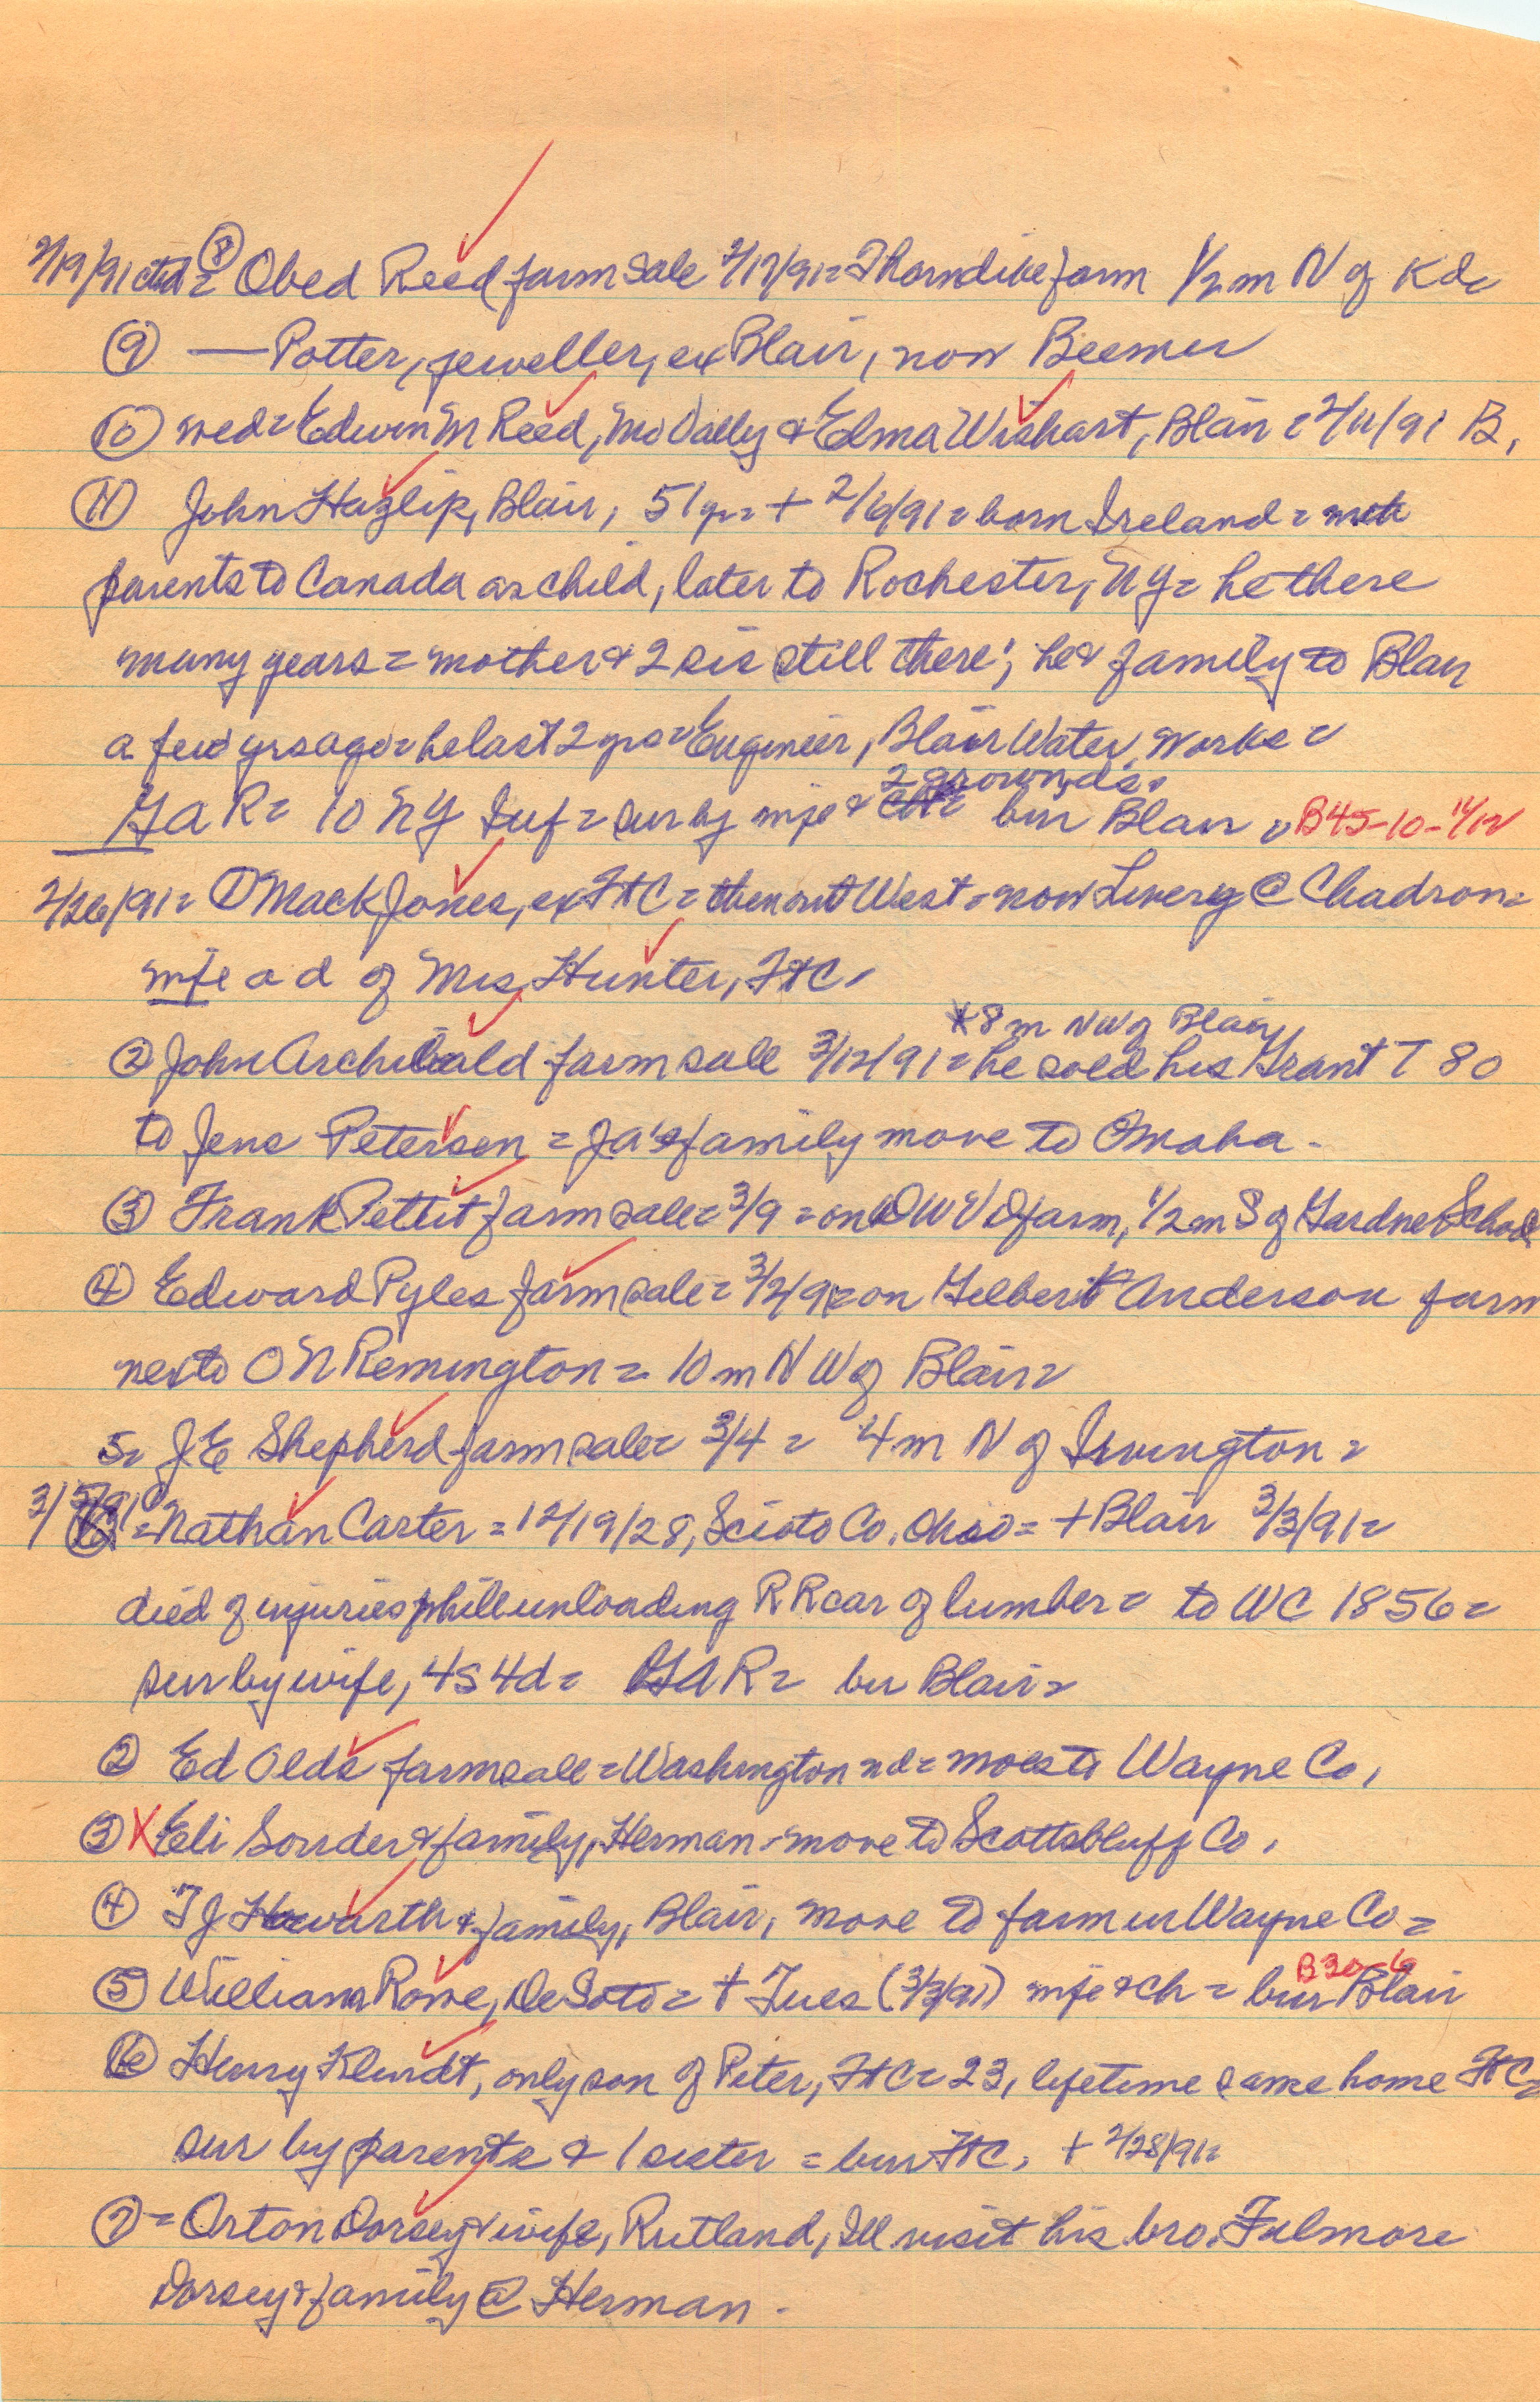 2/19/91 ctd = ⑧ Obed Reed farm sale 2/17/91 = Thorndike farm 1/2 m N of Kd =
⑨ — Potter, jeweller, ex Blair, now Beemer
⑩ wed = Edwin M Reed, Mo Vally & Elma Wishart, Blair = 2/11/91 B.
⑪ John Hazlip, Blair, 51 yr = + 2/6/91 = born Ireland = with
parents to Canada as child, later to Rochester, NY = he there
many years = mother & 2 sis still there; he & family to Blair
a few yrs ago = he last 2 yrs = Engineer, Blair Water Works =
2 grown ds.
GAR = 10 NY Inf = sur by wife & bur Blair = B45-10-
2/26/91 = ① Mack Jones, ex FtC = then out West = now Livery @ Chadron =
wife a d of Mrs Hunter, FtC.
* 8 m NW of Blair
② John Archibald farm sale 3/12/91 = he sold his Grant T 80
to Jens Petersen = JA's family move to Omaha -
③ Frank Pettit farm sale = 3/9 = on farm, 1/2 m S of Gardner School
④ Edward Pyles farm sale = 3/2/91 = on Gilbert Anderson farm
next to ON Remington = 10 m NW of Blair =
5 = JE Shepherd farm sale = 3/4 = 4 m N of Irvington =
3/5/91 ① = Nathan Carter = 12/19/28, Scioto Co, Ohio = + Blair 3/3/91 =
died of injuries while unloading RR car of lumber = to WC 1856 =
sur by wife, 4s 4d = GAR = bur Blair =
② Ed Olds farm sale = Washington = moves to Wayne Co,
③ X Eli Souder & family, Herman - move to Scottsbluff Co,
④ TJ Howarth & family, Blair, move to farm in Wayne Co =
B30-6
⑤ William Rowe, DeSoto = + Tues (3/3/91) wife & ch = bur Blair
⑥ Henry Klindt, only son of Peter, FtC = 23, lifetime same home FtC =
sur by parents & 1 sister = bur FtC, + 2/28/91 =
⑦ = Orton Dorsey & wife, Rutland, Ill visit his bro. Filmore
Dorsey & family @ Herman -